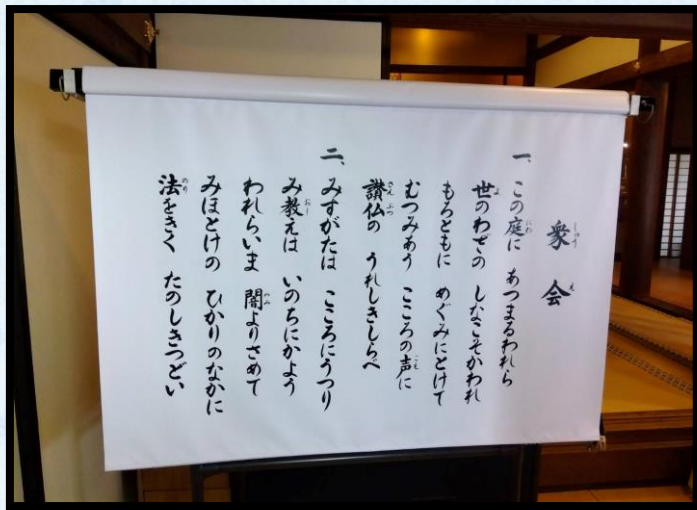 衆会
一、この庭に あつまるわれら
世のわざの しなこそかわれ
もろともに めぐみにとけて
むつみあう こころの声に
讃仏の うれしきしらべ
二、みすがたは こころにうつり
み教えは いのちにかよう
われらいま 闇よりさめて
みほとけの ひかりのなかに
法をきく たのしきつどい